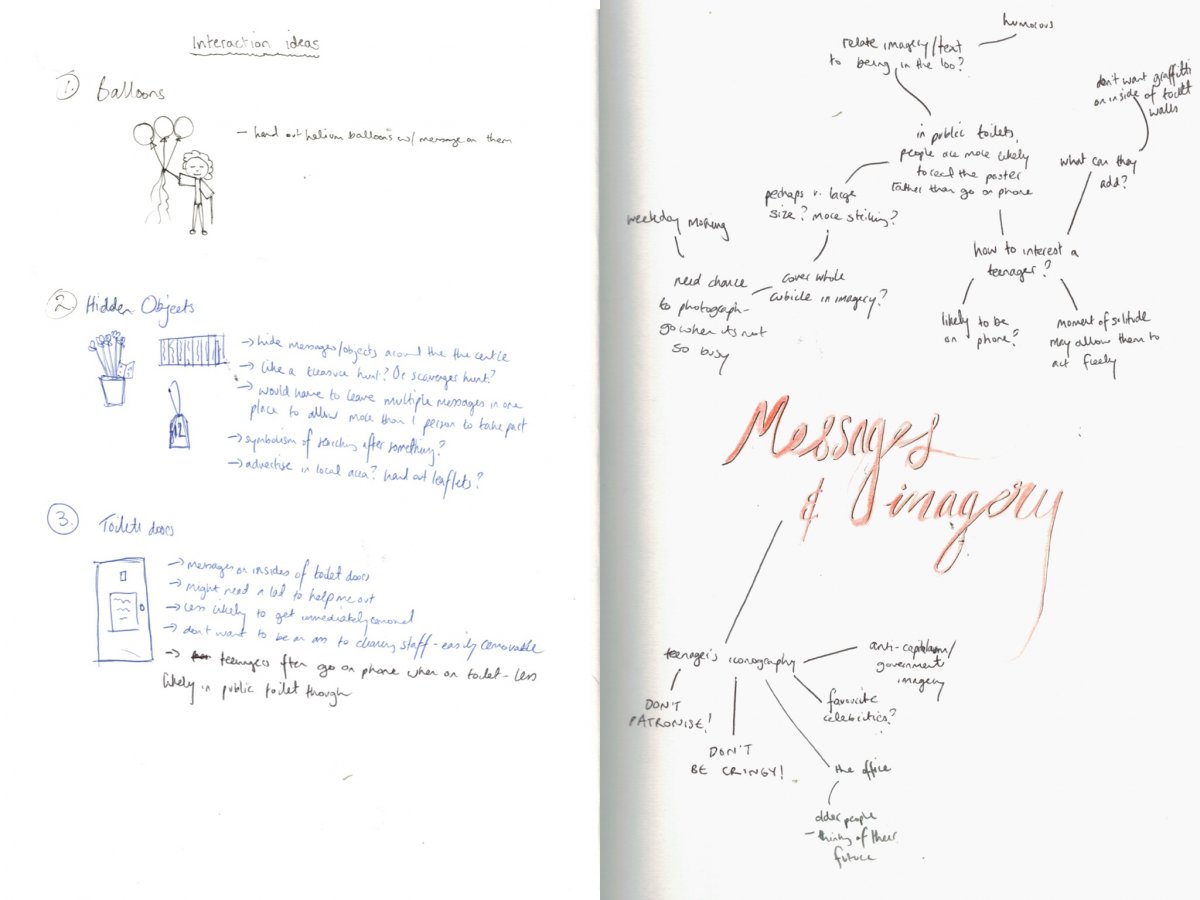 Interaction ideas
1. Balloons
- hand out helium balloons w/ message on them
2 Hidden Objects
→ hide messages/objects around the the centre
→ like a treasure hunt? Or scavenger hunt?
→ would have to leave multiple messages in one
place to allow more than 1 person to take part
→ symbolism of searching after something?
→ advertise in local area? hand out leaflets?
12
3. Toilets doors
→ messages on insides of toilet doors
→ might need a lad to help me out
→ less likely to get immediately removed
→ don't want to be an ass to cleaning staff - easily removable
→ teenagers often go on phone when on toilet - less
likely in public toilet though
humorous
relate imagery/text
to being in the loo?
don't want graffitti
on inside of toilet
walls
in public toilets,
people are more likely
to read the poster
rather than go on phone
what can they
add?
perhaps v. large
size? more striking?
weekday morning
how to interest a
teenager?
need chance
to photograph -
go when its not
so busy
cover whole
cubicle in imagery?
likely to be
on phone?
moment of solitude
may allow them to
act freely
Messages
& imagery
teenager's iconography
anti-capitalism/
government
imagery
DON'T
PATRONISE!
favourite
celebrities?
DON'T
BE CRINGY!
the office
older people
- thinking of their
future